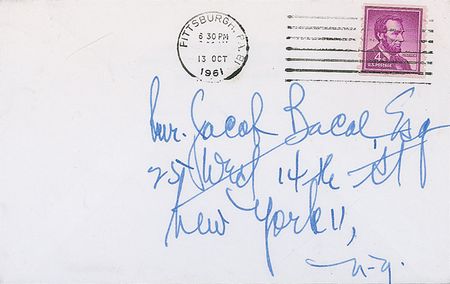 PITTSBURGH, PA.
6 30 PM
13 OCT
1961
4¢
U.S. POSTAGE
Mr. Jacob Bacal, Esq
25 West 14th St
New York 11,
N.Y.